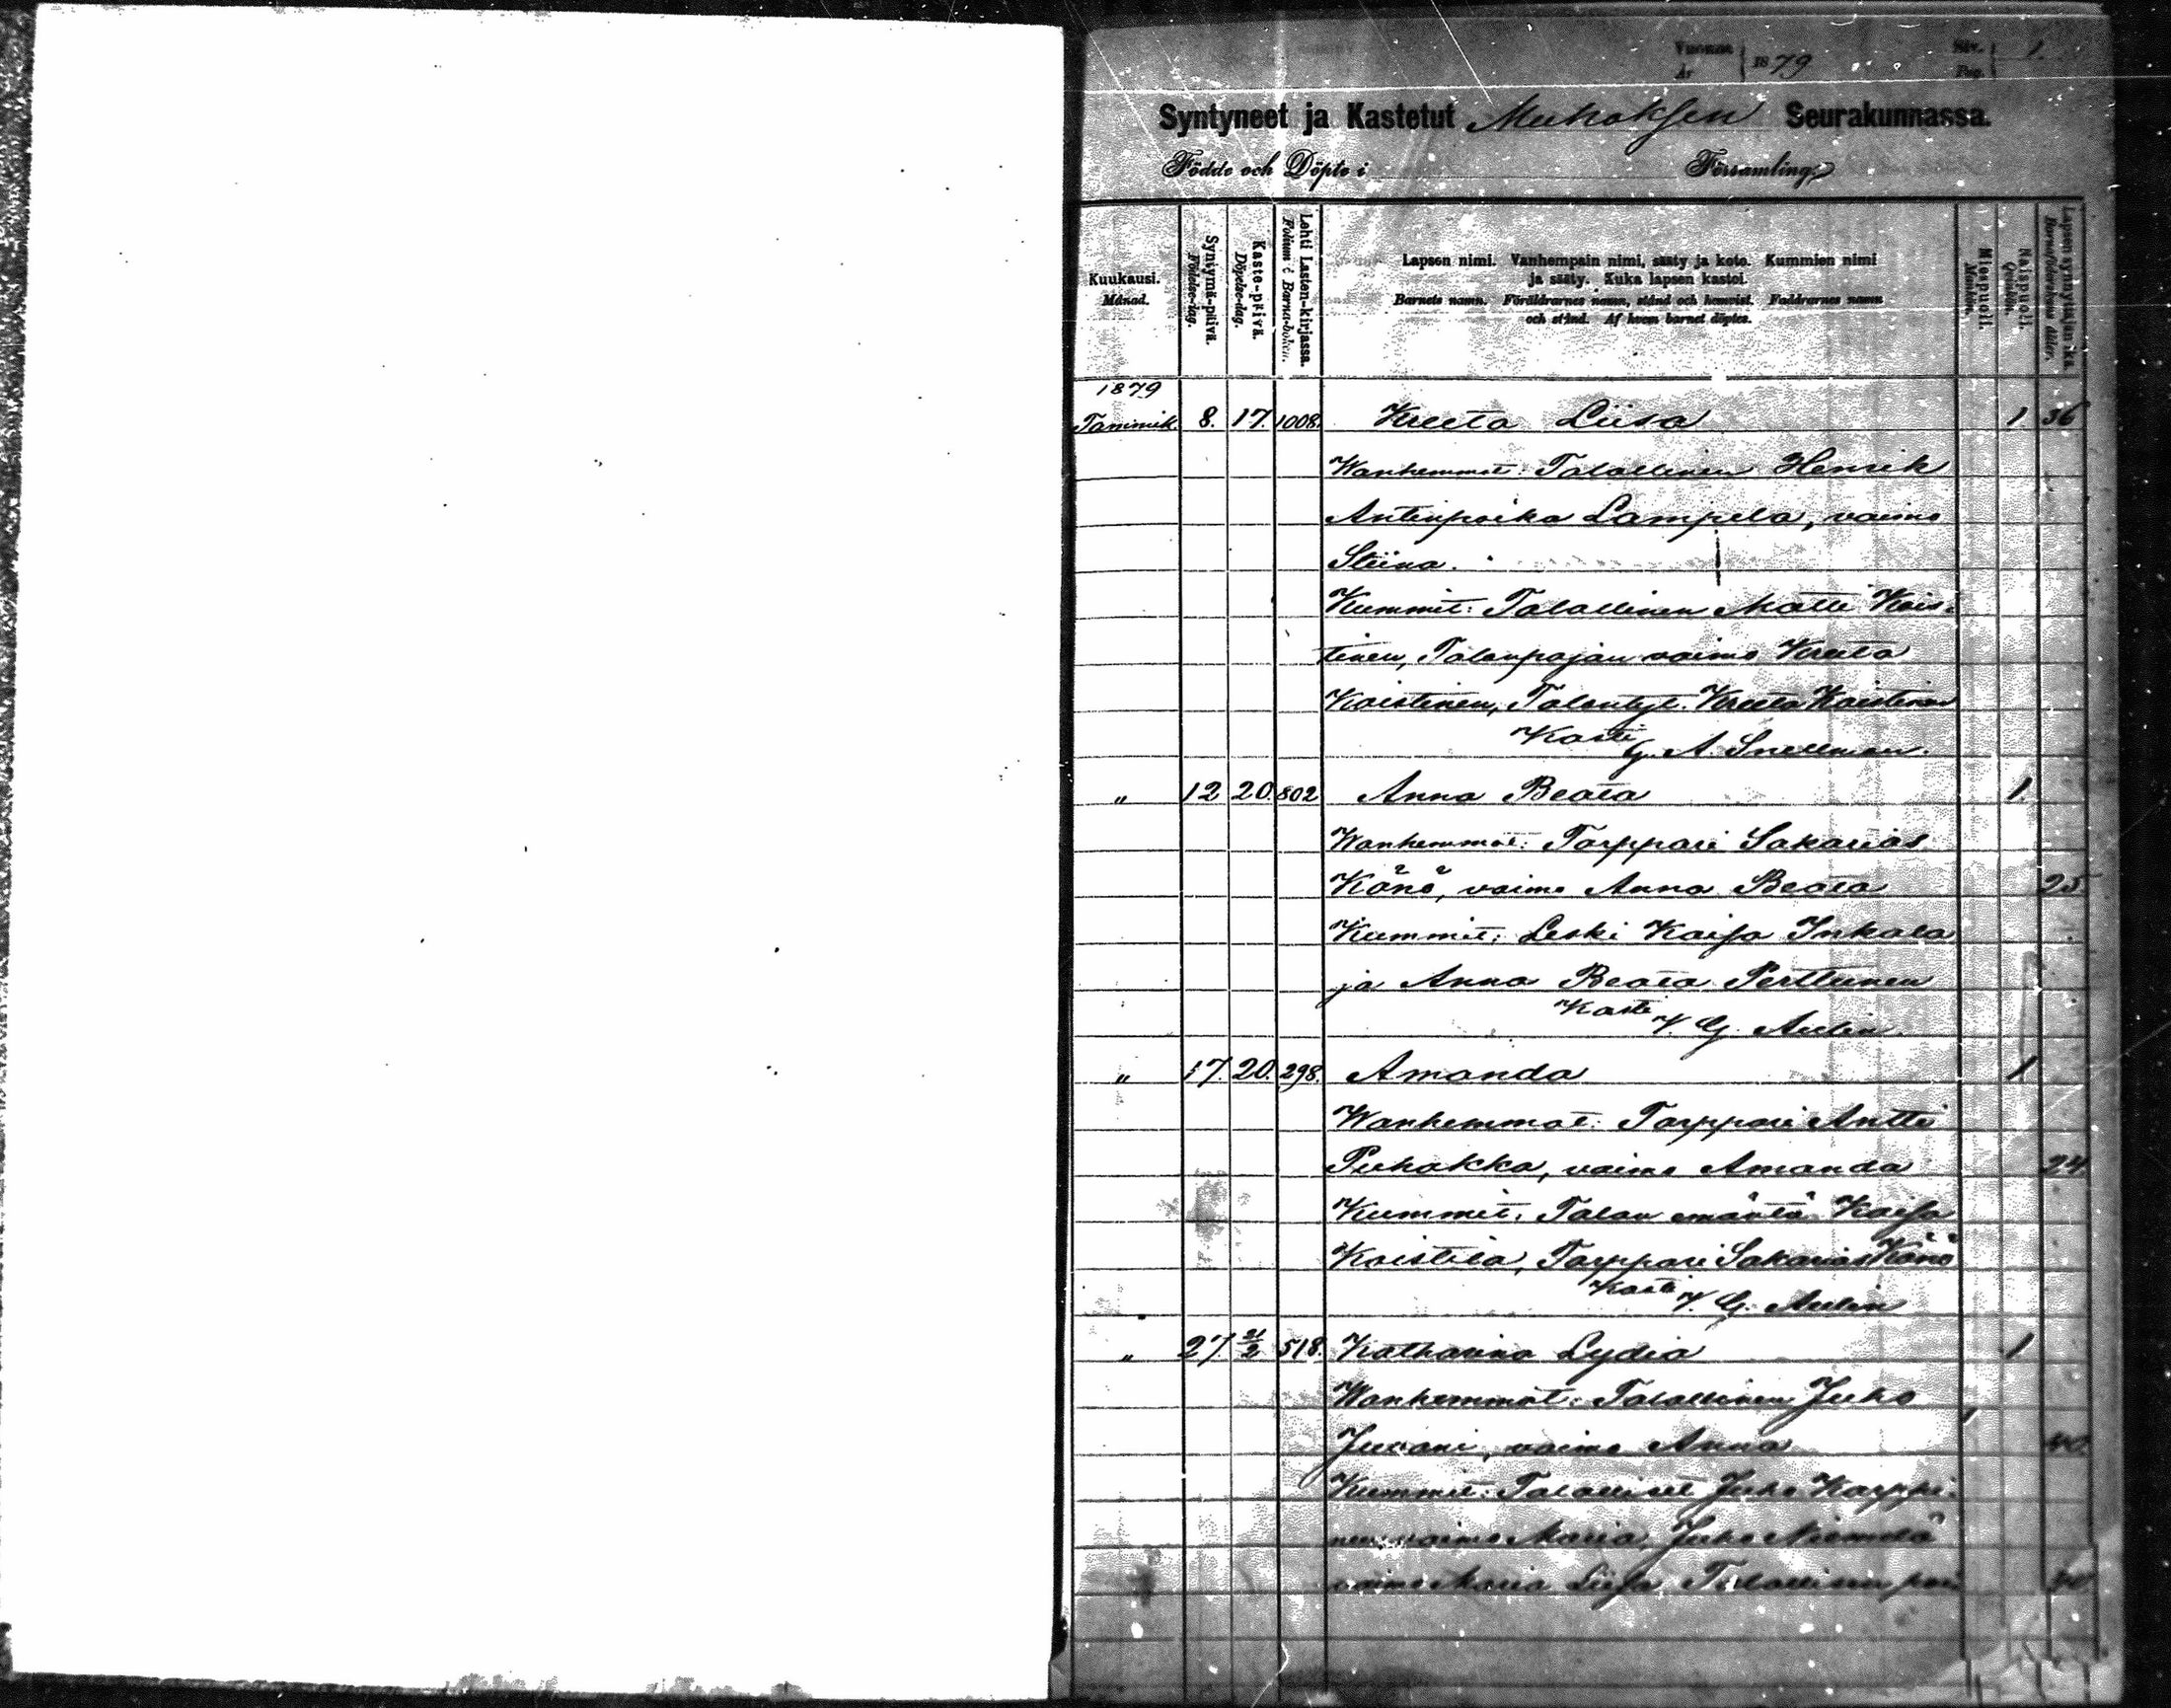 Vuonna 1879 Siv. 1.
År Pag.
Syntyneet ja Kastetut Muhoksen Seurakunnassa.
Födde och Döpte i Församling
Kuukausi.
Månad.
Syntymä-päivä.
Födelse-dag.
Kaste-päivä.
Döpelse-dag.
Lehti Lasten-kirjassa.
Folium i Barna-boken.
Lapsen nimi. Vanhempain nimi, sääty ja koto. Kummien nimi
ja sääty. Kuka lapsen kastoi.
Barnets namn. Föräldrarnes namn, stånd och hemvist. Faddrarnes namn
och stånd. Af hvem barnet döptes.
Miespuoli.
Mankön.
Naispuoli.
Qvinkön.
Lapsen synnyttäjän ikä.
Barnaföderskans ålder.
1879
Tammik. 8. 17. 1008. Kreeta Liisa 1 36
Wanhemmat: Talollinen Henrik
Antinpoika Lampela, vaimo
Stiina.
Kummit: Talollinen Matti Kois-
tinen, Talonpojan vaimo Kreeta
Koistinen, Talontyt. Kreeta Koistinen
Kasti G. A. Snellman.
" 12 20. 802 Anna Beata 1.
Wanhemmat: Torppari Sakarias
Könö, vaimo Anna Beata 25
Kummit: Leski Kaisa Inkala
ja Anna Beata Perttunen
Kasti V. G. Aulin.
" 17. 20. 298. Amanda 1
Wanhemmat: Torppari Antti
Puhakka, vaimo Amanda 24.
Kummit: Talon emäntä Kaisa
Koistila, Torppari Sakarias Könö
Kasti V. G. Aulin
" 27. 2/2 518. Katharina Lydia 1
Wanhemmat: Talollinen Juho
Juvani, vaimo Anna 40.
Kummit: Talolliset Juho Karppi-
nen, vaimo Maria, Juho Niemelä
vaimo Maria Liisa, Talollisen poi